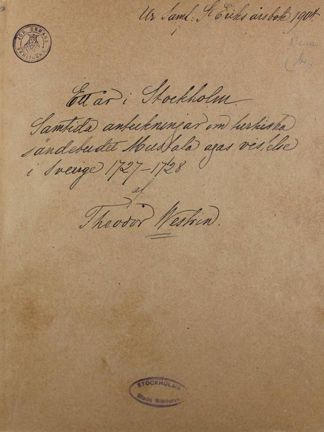 Ur Samf. St Eriks årsbok 1904
Ett år i Stockholm
Samtida anteckningar om turkiska
sändebudet Mustafa agas vistelse
i Sverige 1727-1728
af
Theodor Westrin.
STOCKHOLMS
Stads Bibliotek